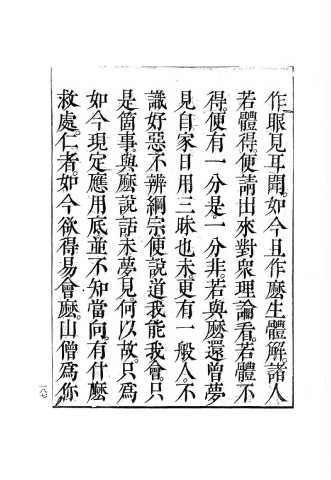 作眼見耳聞。如今且作麼生體解。諸人
若體得。便請出來對衆理論看。若體不
得。便有一分是一分非。若與麼還曾夢
見自家日用三昧也未。更有一般人。不
識好惡不辨綱宗。便說道我能我會。只
是箇事。與麼說話未夢見。何以故。只爲
如今現定應用底並不知當向。有什麼
救處。仁者。如今欲得易會麼。山僧爲你。
一八七